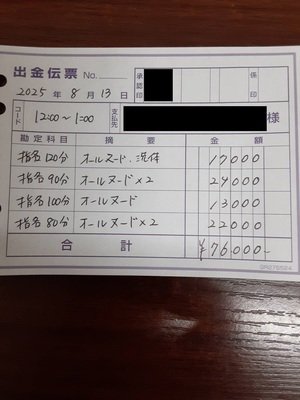 出金伝票 No.
承認印 係印
2025年 8月 13日
コード 12:00〜1:00 支払先 様
勘定科目 摘要 金額
指名120分 オールヌード・洗体 17000
指名90分 オールヌード×2 24000
指名100分 オールヌード 13000
指名80分 オールヌード×2 22000
合計 ¥76000-